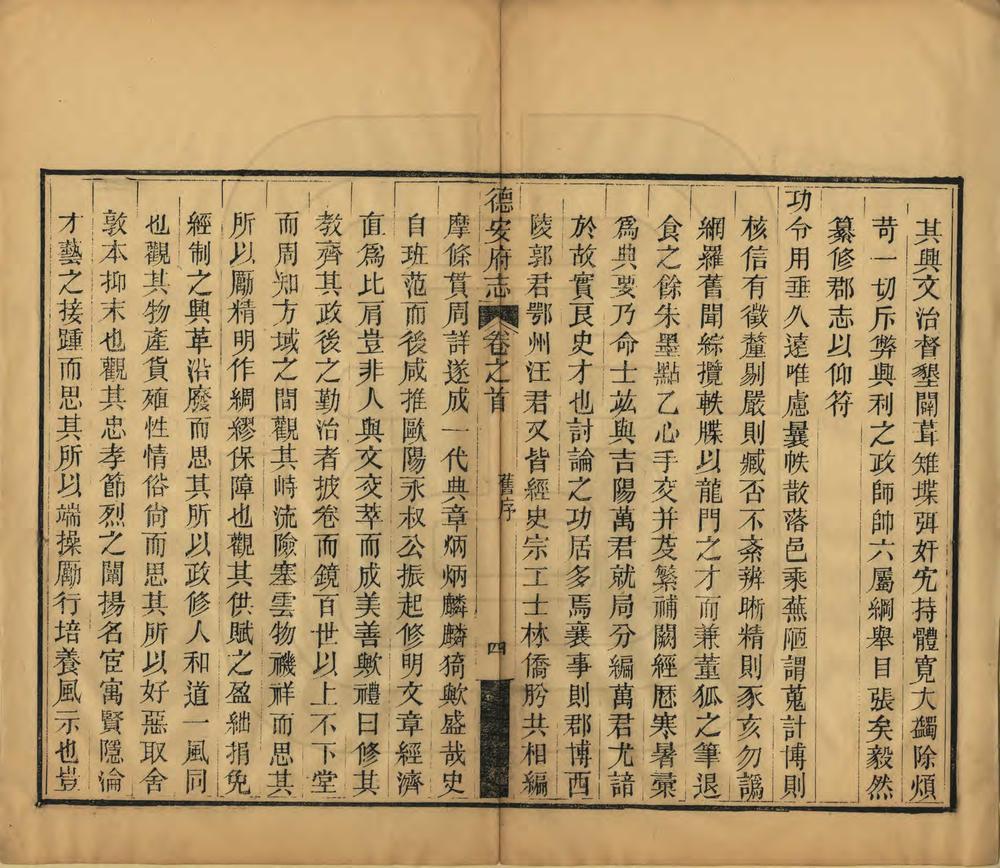 其興文治督墾闢葺雉堞弭奸宄持體寬大蠲除煩
苛一切斥弊興利之政師帥六屬綱舉目張矣毅然
纂修郡志以仰符
功令用垂久遠唯慮曩帙散落邑乘蕪陋謂蒐計博則
核信有徵釐剔嚴則臧否不紊辨晰精則豕亥勿譌
網羅舊聞綜攬軼牒以龍門之才而兼董狐之筆退
食之餘朱墨點乙心手交并芟繁補闕經歷寒暑稾
爲典要乃命士竑與吉陽萬君就局分編萬君尤諳
於故實良史才也討論之功居多焉襄事則郡博西
陵郭君鄂州汪君又皆經史宗工士林僑肹共相編
德安府志 卷之首 舊序 四
摩條貫周詳遂成一代典章炳炳麟麟猗歟盛哉史
自班范而後咸推歐陽永叔公振起修明文章經濟
直爲比肩豈非人與文交萃而成美善歟禮曰修其
教齊其政後之勤治者披卷而鏡百世以上不下堂
而周知方域之間觀其峙流險塞雲物禨祥而思其
所以勵精明作綢繆保障也觀其供賦之盈絀捐免
經制之興革沿廢而思其所以政修人和道一風同
也觀其物產貨殖性情俗尚而思其所以好惡取舍
敦本抑末也觀其忠孝節烈之闡揚名宦寓賢隱淪
才藝之接踵而思其所以端操勵行培養風示也豈